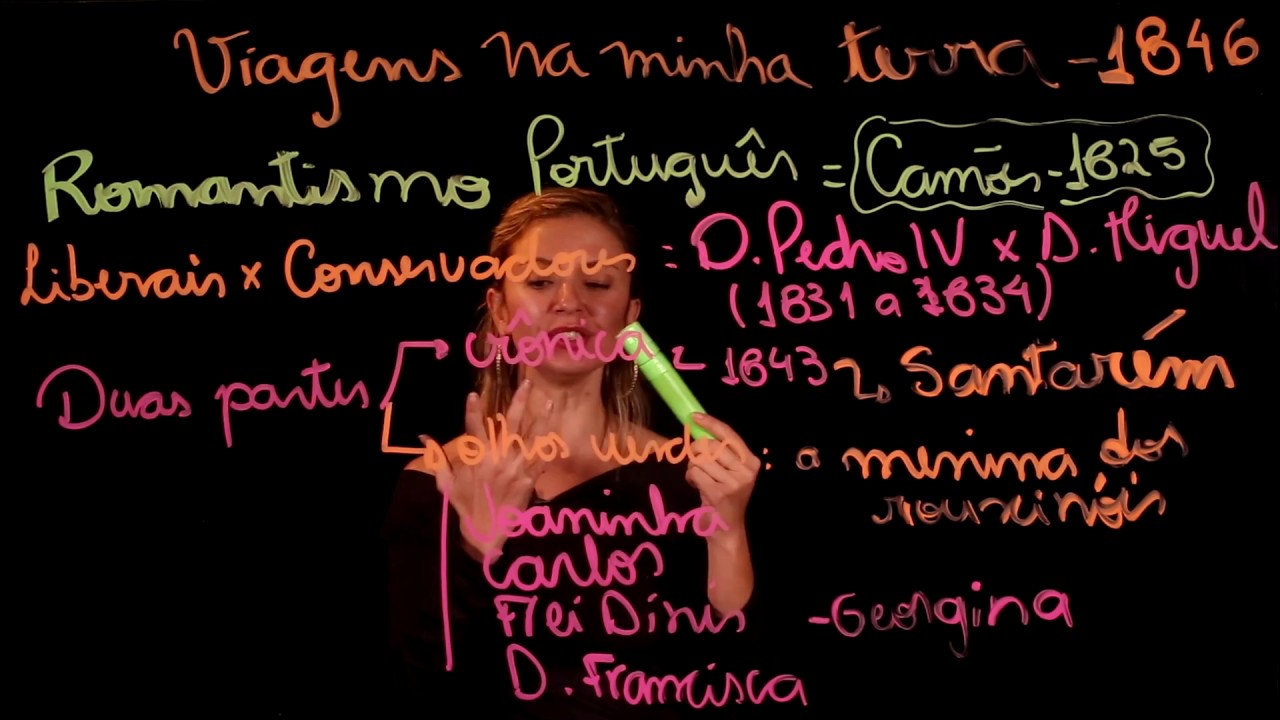 Viagens na minha terra - 1846
Romantismo Português = Camões - 1825
Liberais x Conservadores : D. Pedro IV x D. Miguel
(1831 a 1834)
Duas partes
crônica - 1843 Santarém
olhos verdes : a menina dos
rouxinóis
Joaninha
Carlos
Frei Dinis - Georgina
D. Francisca